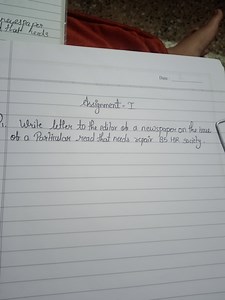 newspaper
that needs
Date
Assignment - I
Write letter to the editor of a newspaper on the issue
of a Particular road that needs repair as HSE society.